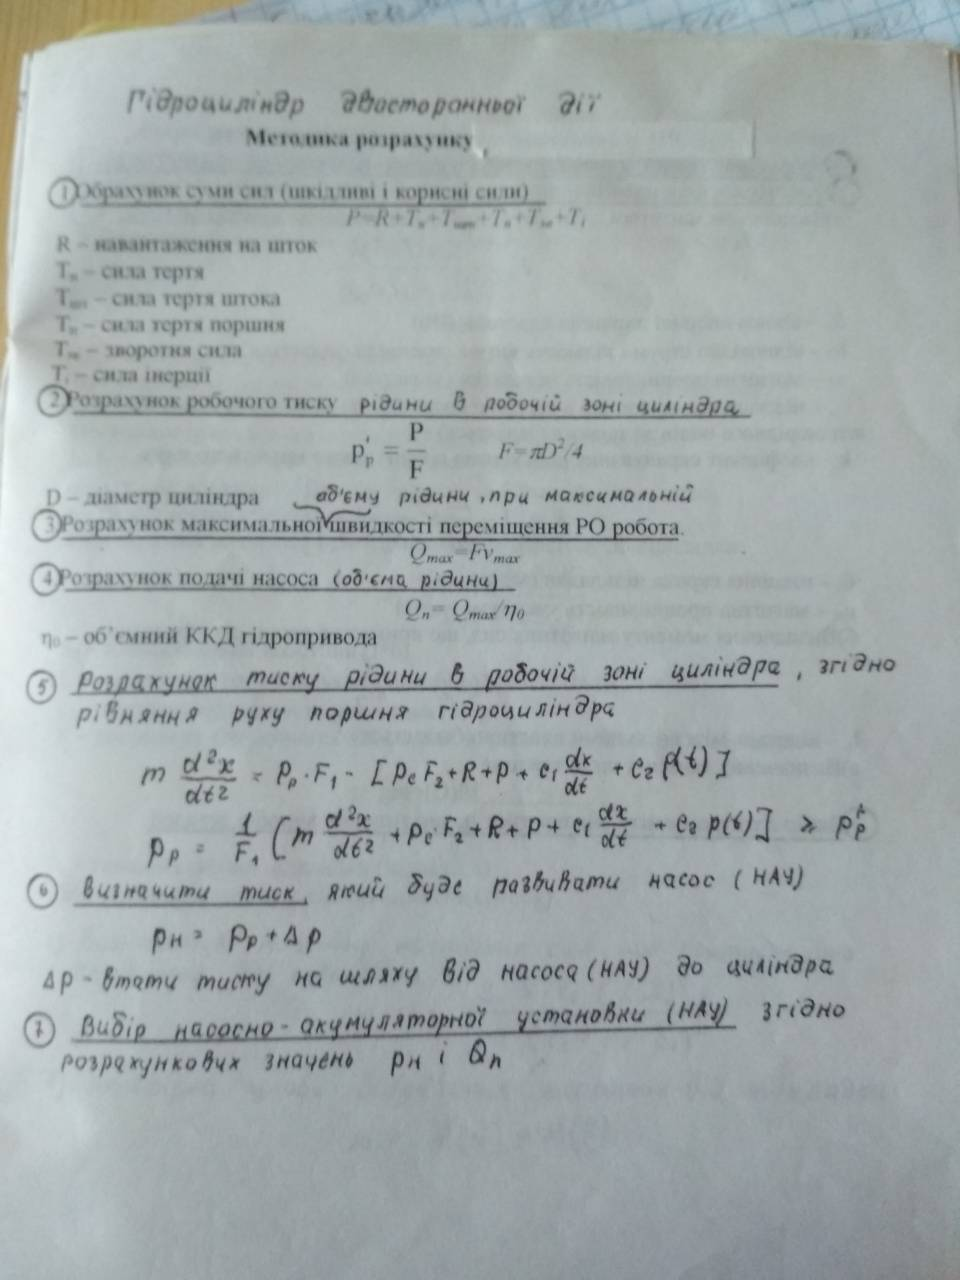 Гідроциліндр двосторонньої дії
Методика розрахунку
1 Обрахунок суми сил (шкідливі і корисні сили)
R – навантаження на шток
– сила тертя
– сила тертя штока
Tп – сила тертя поршня
– зворотня сила
Ti – сила інерції
2 Розрахунок робочого тиску рідини в робочій зоні циліндра
p'p = P/F F=πD²/4
D – діаметр циліндра об'єму рідини, при максимальній
3 Розрахунок максимальної швидкості переміщення РО робота.
Qmax=Fvmax
4 Розрахунок подачі насоса (об'єма рідини)
Qп= Qmax/η0
η0 – об'ємний ККД гідропривода
5 Розрахунок тиску рідини в робочій зоні циліндра, згідно
рівняння руху поршня гідроциліндра
m d²x/dt² = Pp·F1 - [Pc F2+R+P+c1 dx/dt + c2 p(t)]
Pp = 1/F1 [m d²x/dt² + Pc·F2+R+P+c1 dx/dt + c2 p(t)] ≥
6 Визначити тиск, який буде развивати насос (НАУ)
pн = Pp + Δp
Δp - втати тиску на шляху від насоса (НАУ) до циліндра
7 Вибір насосно-акумуляторної установки (НАУ) згідно
розрахункових значень pн і Qп